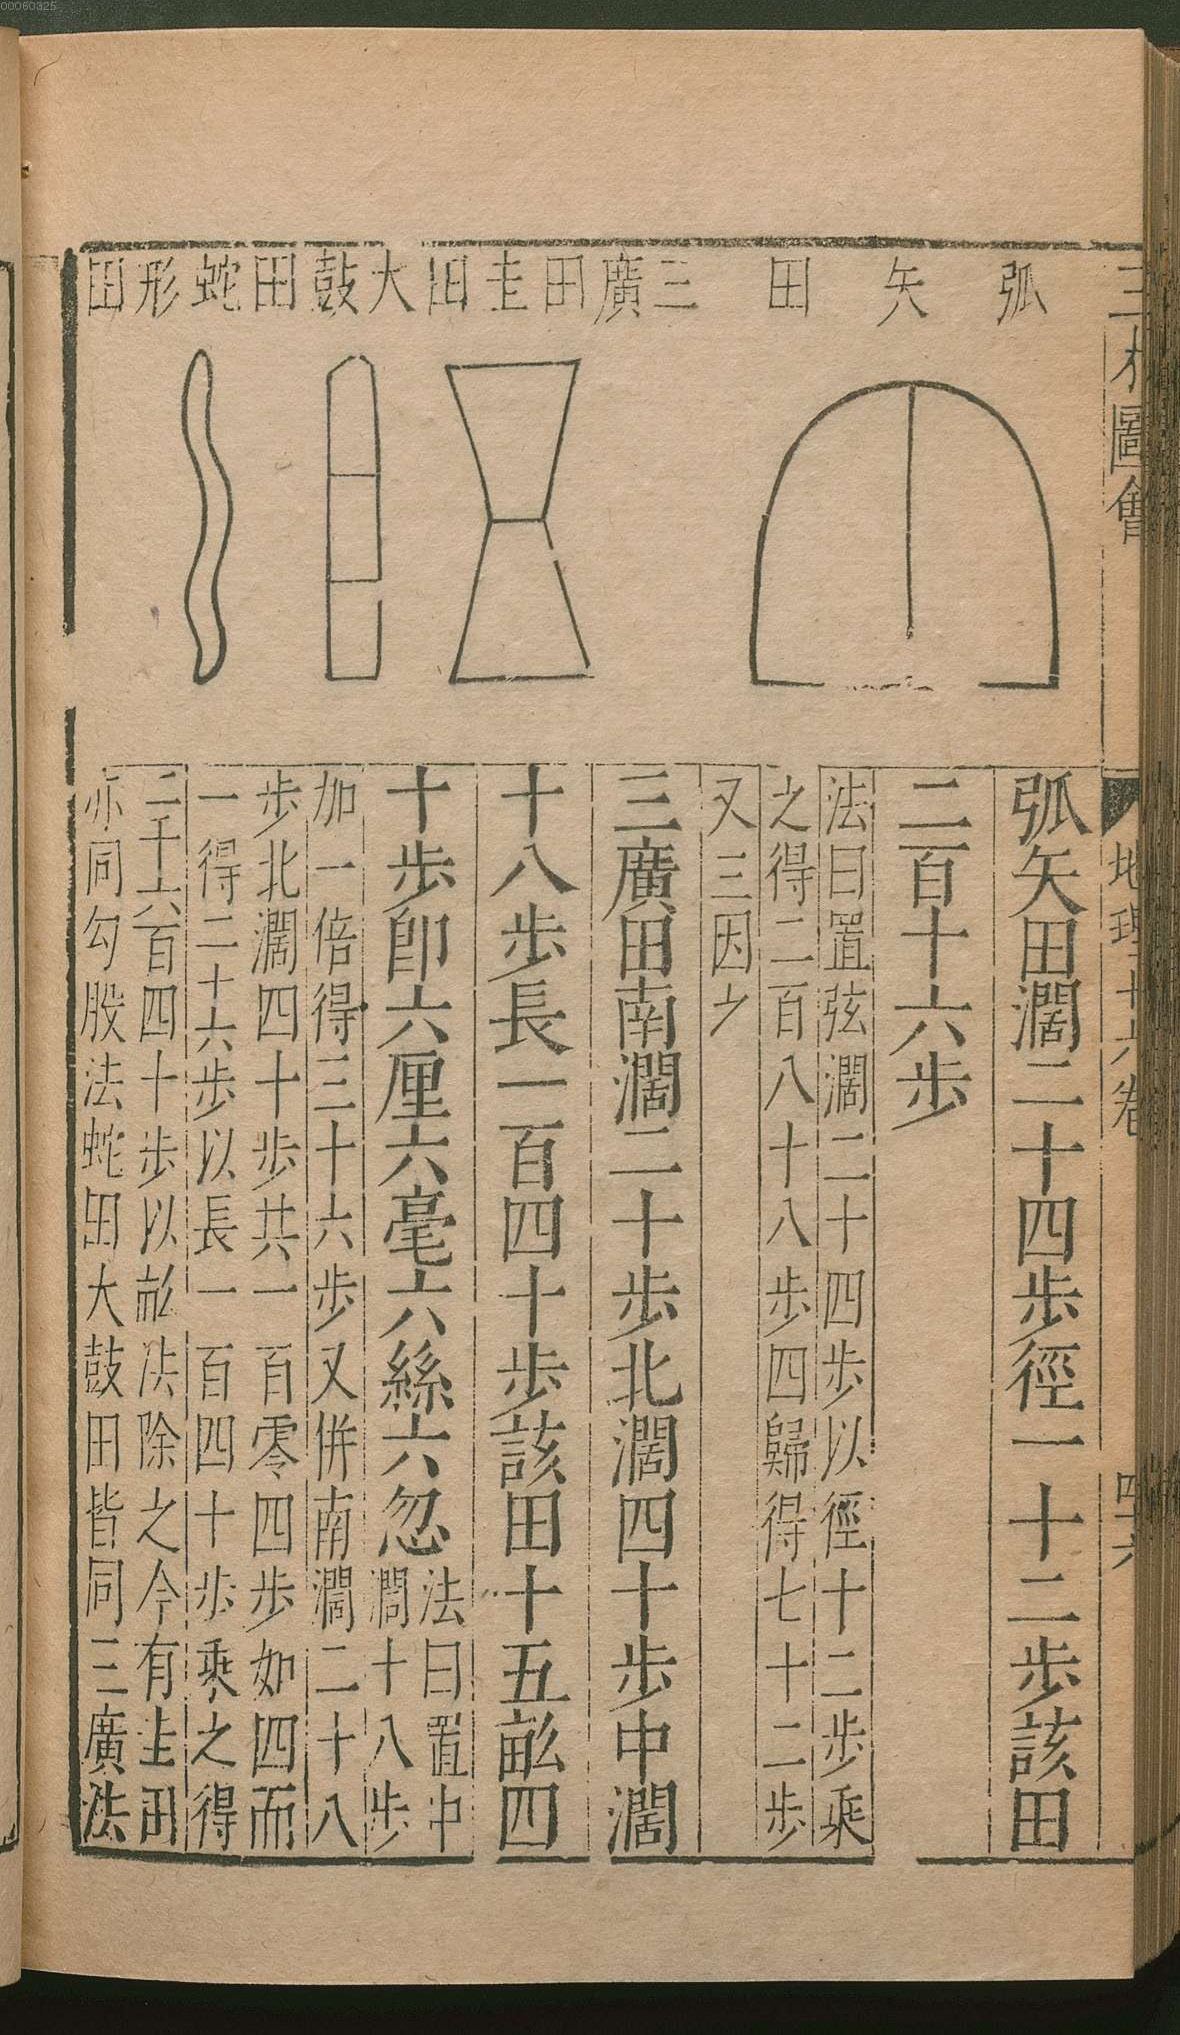 00060325
三才圖會
地理十六卷
四六
弧矢田
三廣田
圭田
大鼓田
蛇形田
弧矢田濶二十四步徑一十二步該田
二百十六步
法曰置弦濶二十四步以徑十二步乘
之得二百八十八步四歸得七十二步
又三因
三廣田南濶二十步北濶四十步中濶
十八步長一百四十步該田十五畝四
十步卽六厘六毫六絲六忽
法曰置中
濶十八步
加一倍得三十六步又併南濶二十八
步北濶四十步共一百零四步如四而
一得二十六步以長一百四十步乘之得
三千六百四十步以畝法除之今有圭田
亦同勾股法蛇田大鼓田皆同三廣法